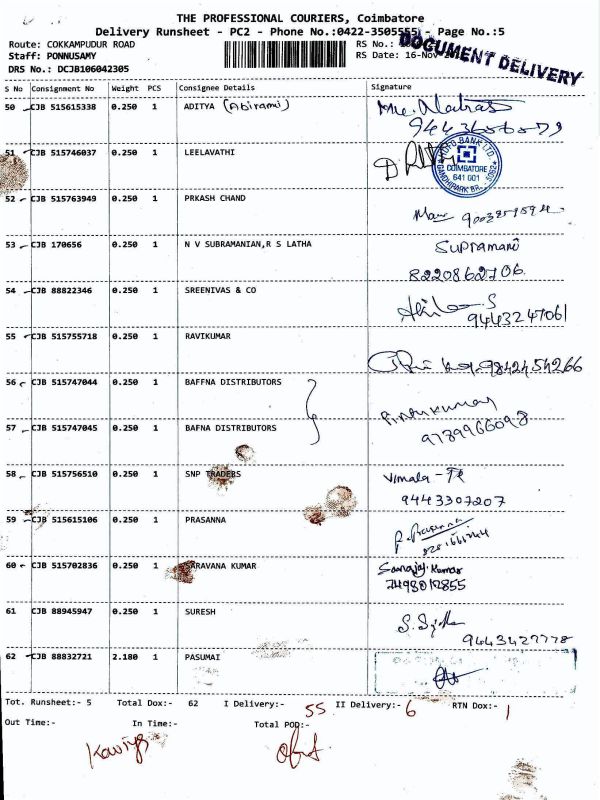 THE PROFESSIONAL COURIERS, Coimbatore
Delivery Runsheet - PC2 - Phone No.:0422-3505555 - Page No.:5
Route: COKKAMPUDUR ROAD RS No.:
Staff: PONNUSAMY RS Date: 16-Nov
DRS No.: DCJB106042305
DOCUMENT DELIVERY
S No Consignment No Weight PCS Consignee Details Signature
50 CJB 515615338 0.250 1 ADITYA (Abirami)
51 CJB 515746037 0.250 1 LEELAVATHI
BANK LTD.
COIMBATORE
641 001
GANDHIPARK BR.
52 CJB 515763949 0.250 1 PRKASH CHAND
53 CJB 170656 0.250 1 N V SUBRAMANIAN,R S LATHA Supramani
8220862706
54 CJB 88822346 0.250 1 SREENIVAS & CO
9443247061
55 CJB 515755718 0.250 1 RAVIKUMAR 9842454266
56 CJB 515747044 0.250 1 BAFFNA DISTRIBUTORS
57 CJB 515747045 0.250 1 BAFNA DISTRIBUTORS
9789966098
58 CJB 515756510 0.250 1 SNP TRADERS Vimala
9443307207
59 CJB 515615106 0.250 1 PRASANNA
60 CJB 515702836 0.250 1 SARAVANA KUMAR Kumar
61 CJB 88945947 0.250 1 SURESH
9443427778
62 CJB 88832721 2.180 1 PASUMAI
Tot. Runsheet:- 5 Total Dox:- 62 I Delivery:- 55 II Delivery:- 6 RTN Dox:- 1
Out Time:- In Time:- Total POD:-